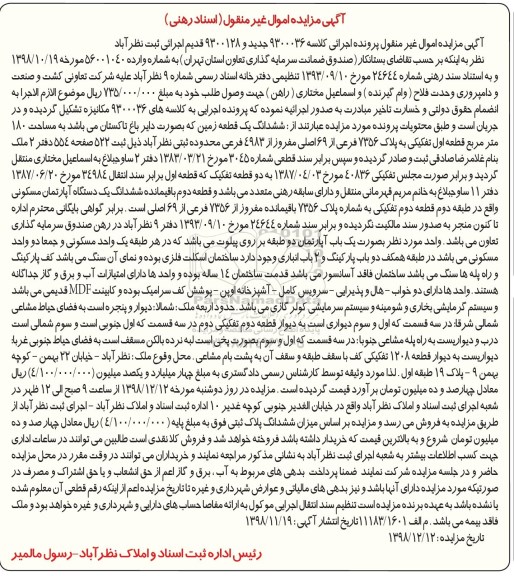 آگهی مزایده اموال غیر منقول ( اسناد رهنی )
آگهی مزایده اموال غیر منقول پرونده اجرائی کلاسه ۹۳۰۰۰۳۶ جدید و ۹۳۰۰۱۲۸ قدیم اجرائی ثبت نظرآباد
نظر به اینکه بر حسب تقاضای بستانکار ( صندوق ضمانت سرمایه گذاری تعاون استان تهران ) به شماره وارده ۵۶۰۰۱۰۴۰ مورخه ۱۳۹۸/۱۰/۱۹
و به استناد سند رهنی شماره ۲۴۶۴۴ مورخ ۱۳۹۳/۰۹/۱۰ تنظیمی دفترخانه اسناد رسمی شماره ۹ نظرآباد علیه شرکت تعاونی کشت و صنعت
و دامپروری وحدت فلاح ( وام گیرنده ) و اسماعیل مختاری ( راهن ) جهت وصول طلب خود به مبلغ ۷۳۵/۰۰۰/۰۰۰ ریال موضوع الازم الاجرا به
انضمام حقوق دولتی و خسارت تاخیر مبادرت به صدور اجرائیه نموده که پرونده اجرایی به کلاسه های ۹۳۰۰۰۳۶ مکانیزه تشکیل گردیده و در
جریان است و طبق محتویات پرونده مورد مزایده عبارتند از : ششدانگ یک قطعه زمین که بصورت دایر باغ تاکستان می باشد به مساحت ۱۸۰
متر مربع قطعه اول تفکیکی به پلاک ۷۳۵۶ فرعی از ۶۹ اصلی مفروز از ۴۹۸۳ فرعی محدوده ثبتی نظرآباد ذیل ثبت ۵۲۲ صفحه ۵۵۴ دفتر ۲ ملک
بنام غلامرضا صادقی ثبت و صادر گردیده و سپس برابر سند قطعی شماره ۳۰۴۵ مورخ ۱۳۸۳/۰۳/۲۱ دفتر ۲ ساوجبلاغ به اسماعیل مختاری منتقل
گردید و برابر صورت مجلس تفکیکی ۴۰۸۳۶ مورخ ۱۳۸۷/۰۴/۰۳ به دو قطعه تفکیک که قطعه اول برابر سند انتقال ۳۴۹۸۴ مورخ ۱۳۸۷/۰۶/۲۰
دفتر ۱۱ ساوجبلاغ به خانم مریم قهرمانی منتقل و دارای سابقه رهنی متعدد می باشد و قطعه دوم باقیمانده ششدانگ یک دستگاه آپارتمان مسکونی
واقع در طبقه دوم قطعه دوم تفکیکی به شماره پلاک ۷۳۵۶ باقیمانده مفروز از ۷۳۵۶ فرعی از ۶۹ اصلی است . برابر گواهی بایگانی محترم اداره
تا کنون منجر به صدور سند مالکیت نگردیده و برابر سند شماره ۲۴۶۴۴ مورخ ۱۳۹۳/۰۹/۱۰ دفتر ۹ نظرآباد در رهن صندوق سرمایه گذاری
تعاون می باشد . واحد مورد نظر بصورت یک باب آپارتمان دو طبقه بر روی پیلوت می باشد که در هر طبقه یک واحد مسکونی و جمعا دو واحد
مسکونی می باشد در طبقه همکف دو باب پارکینگ و ۲ باب انباری وجود دارد ساختمان اسکلت فلزی بوده و نمای آن سنگ می باشد کف پارکینگ
و راه پله ها سنگ می باشد ساختمان فاقد آسانسور می باشد قدمت ساختمان ۱۴ ساله بوده و واحد ها دارای امتیازات آب و برق و گاز جداگانه
هستند . واحد ها دارای دو خواب - هال و پذیرایی - سرویس کامل - آشپزخانه اوپن - پوشش کف سرامیک بوده و کابینت MDF قدیمی می باشد
و سیستم گرمایشی بخاری و شومینه و سیستم سرمایشی کولر گازی می باشد . حدود اربعه ملک : شمالا : دیوار و پنجره است به فضای حیاط مشاعی
شمالی شرقا : در سه قسمت که اول و سوم دیواری است به دیوار قطعه دوم تفکیکی دوم در سه قسمت که اول جنوبی است و سوم شمالی است
درب و دیواریست به راه پله مشاعی جنوبا : در سه قسمت که اول و سوم بصورت پخی است لبه نرده بالکن مسقف است به فضای حیاط جنوبی غربا :
دیواریست به دیوار قطعه ۱۲۰۸ تفکیکی کف با سقف طبقه و سقف آن به پشت بام مشاعی . محل وقوع ملک : نظرآباد - خیابان ۲۲ بهمن - کوچه
بهمن ۹ - پلاک ۱۹ طبقه اول . لذا مورد وثیقه توسط کارشناس رسمی دادگستری به مبلغ چهار میلیارد و یکصد میلیون (۴/۱۰۰/۰۰۰/۰۰۰) ریال
معادل چهارصد و ده میلیون تومان برآورد قیمت گردیده است . مزایده در روز دوشنبه مورخه ۱۳۹۸/۱۲/۱۲ از ساعت ۹ صبح الی ۱۲ ظهر در
شعبه اجرای ثبت اسناد و املاک نظرآباد واقع در خیابان الغدیر جنوبی کوچه غدیر ۱۰ اداره ثبت اسناد و املاک نظرآباد - اجرای ثبت نظرآباد از
طریق مزایده به فروش می رسد و مزایده بر اساس میزان ششدانگ پلاک ثبتی فوق به مبلغ پایه ( ۴/۱۰۰/۰۰۰/۰۰۰ ) ریال معادل چهار صد و ده
میلیون تومان شروع و به بالاترین قیمت که خریدار داشته باشد فروخته خواهد شد و فروش کلا نقدی است طالبین می توانند در ساعات اداری
جهت کسب اطلاعات بیشتر به شعبه اجرای ثبت نظرآباد به نشانی مذکور مراجعه نمایند و خریداران می توانند در وقت مقرر در محل مزایده
حاضر و در جلسه مزایده شرکت نمایند ضمنا پرداخت بدهی های مربوط به آب ، برق و گاز اعم از حق انشعاب و یا حق اشتراک و مصرف در
صورتیکه مورد مزایده دارای آنها باشد و نیز بدهی های مالیاتی و عوارض شهرداری و غیره تا تاریخ مزایده اعم از اینکه رقم قطعی آن معلوم شده
یا نشده باشد به عهده برنده مزایده است تنظیم سند انتقال اجرایی موکول به ارائه مفاصا حساب های دارایی و شهرداری و غیره خواهد بود و ملک
فاقد بیمه می باشد . م الف ۱۱۱۸۳/۱۶۰۱ تاریخ انتشار آگهی : ۱۳۹۸/۱۱/۱۹
تاریخ مزایده : ۱۳۹۸/۱۲/۱۲
رئیس اداره ثبت اسناد و املاک نظرآباد - رسول مالمیر